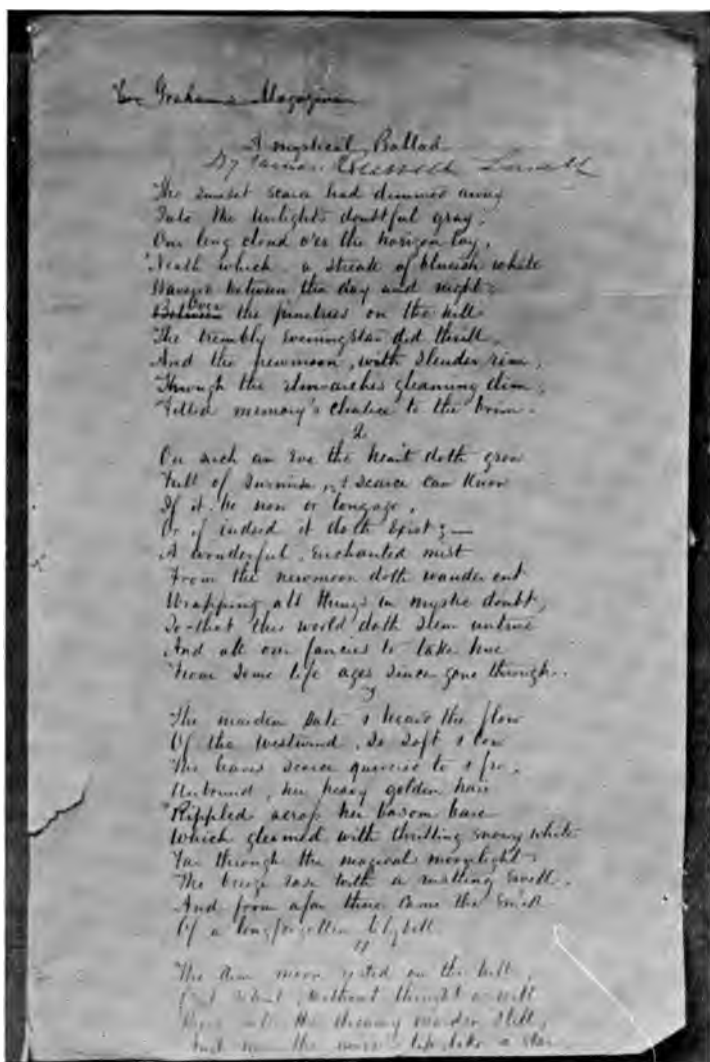 For Graham's Magazine
A mystical Ballad
By James Russell Lowell
The sunset scarce had dimmed away
Into the twilight's doubtful gray;
One long cloud o'er the horizon lay,
'Neath which, a streak of blueish white
Wavered between the day and night;
Between Over the pinetrees on the hill
The trembly eveningstar did thrill,
And the newmoon, with slender rim,
Through the elmarches gleaming dim,
Filled memory's chalice to the brim.
2.
On such an eve the heart doth grow
Full of surmise, & scarce can know
If it be now or longago,
Or if indeed it doth exist;—
A wonderful, enchanted mist
From the newmoon doth wander out
Wrapping all things in mystic doubt,
So that this world doth seem untrue
And all our fancies to take hue
From some life ages since gone through.
3
The maiden sate & heard the flow
Of the westwind, so soft & low
The leaves scarce quivered to & fro;
Unbound, her heavy golden hair
Rippled across her bosom bare
Which gleamed with thrilling snowy white
Far through the magical moonlight;
The breeze rose with a rustling swell,
And from afar there came the smell
Of a longforgotten lilybell
4
The dim moon rested on the hill,
But silent, without thought or will
the dreamy maiden still,
And now the moon's tip, like a star